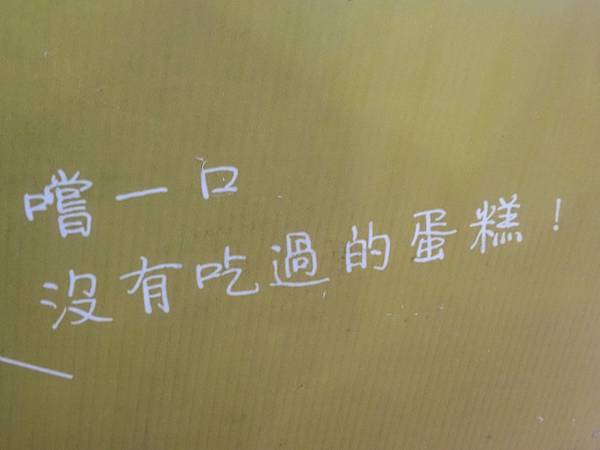 嚐一口
沒有吃過的蛋糕！